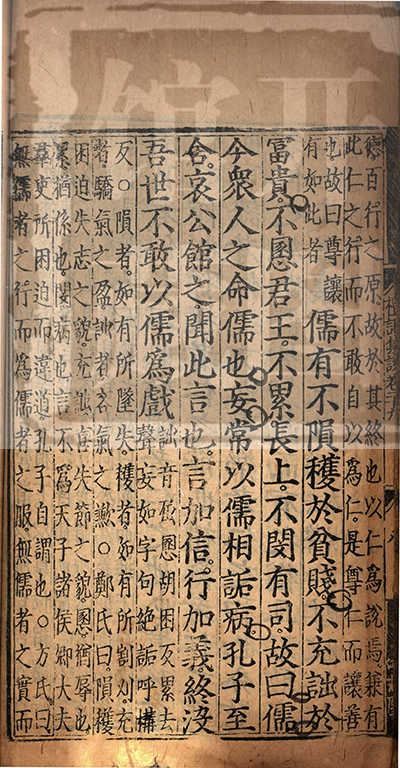 總百行之原故於其終也以仁爲說焉兼有
此仁之行而不敢自以爲仁是尊仁而讓善
也故曰尊讓
有如此者
儒有不隕穫於貧賤。不充詘於
富貴。不慁君王。不累長上。不閔有司。故曰儒
今衆人之命儒也妄常以儒相詬病孔子至
舍。哀公館之聞此言也。言加信。行加義。終沒
吾世不敢以儒爲戲
詘音屈慁胡困反累去
聲妄如字句絶詬呼構
反○隕者。如有所墜失。穫者如有所割刈。充
者。驕氣之盈。詘者吝氣之歉○鄭氏曰。隕穫
困迫失志之貌。充詘。喜失節之貌。慁猶辱也
累猶係也。閔病也。言不爲天子諸侯卿大夫
羣吏所困迫而違道。孔子自謂也。○方氏曰。
無儒者之行而爲儒者之服無儒者之實而